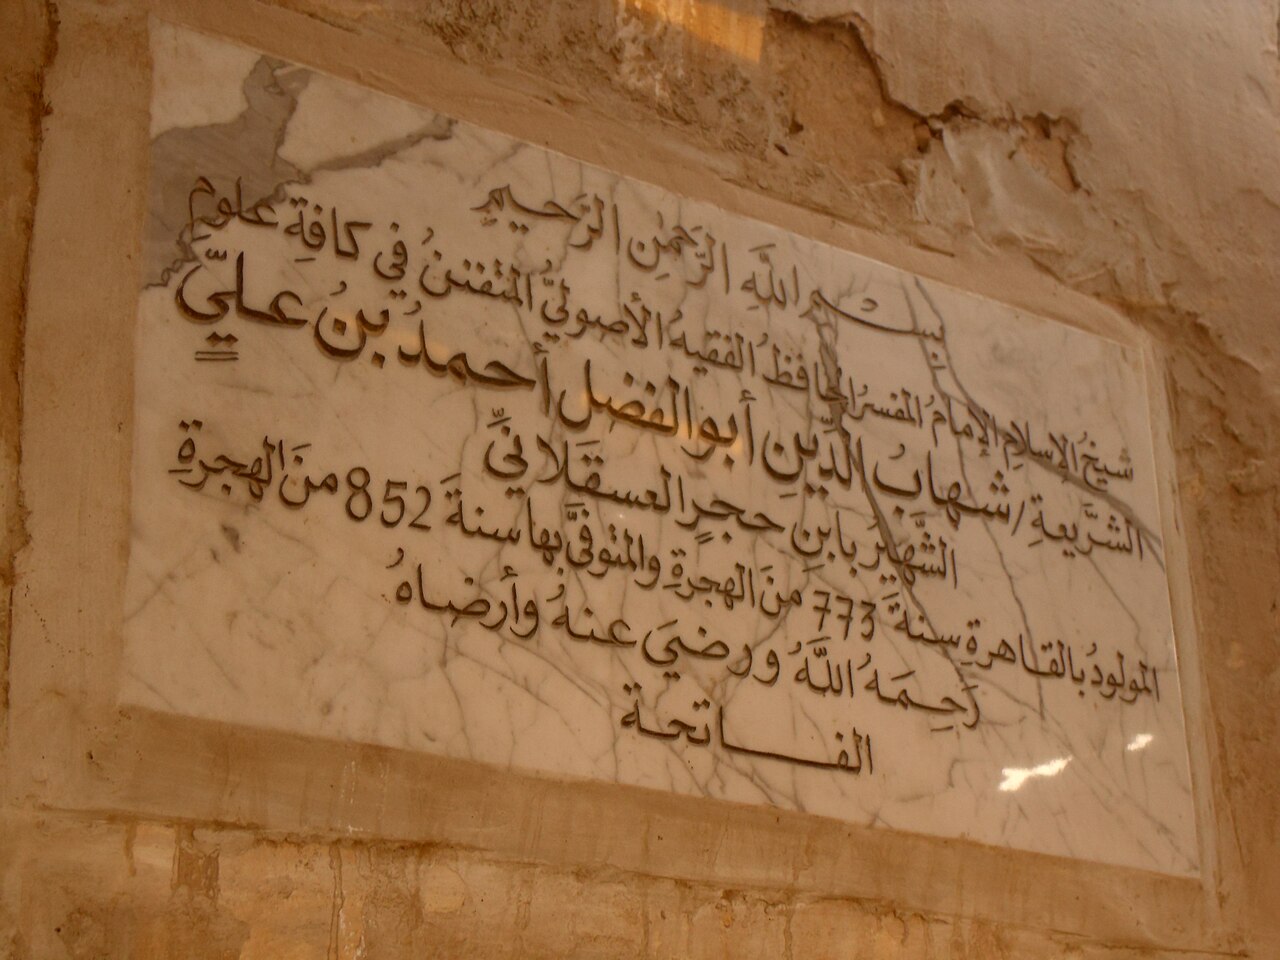 بِسْمِ اللَّهِ الرَّحْمٰنِ الرَّحِيمِ
شيخُ الإسلامِ الإمامُ المفسرُ الحافظُ الفقيهُ الأصوليُّ المتفننُ في كافةِ علومِ
الشَّريعةِ / شهابُ الدِّينِ أبو الفضل أحمدُ بنُ عليِّ
الشَّهيرُ بابنِ حجرٍ العسقَلانيِّ
المولودُ بالقاهرةِ سنةَ 773 منَ الهجرةِ والمتوفَّى بها سنةَ 852 منَ الهجرةِ
رَحِمَهُ اللَّهُ ورضيَ عنهُ وأرضاهُ
الفاتحة